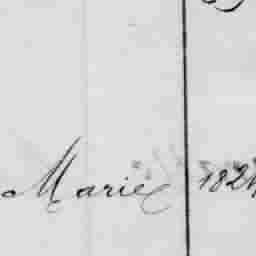 Marie 1824